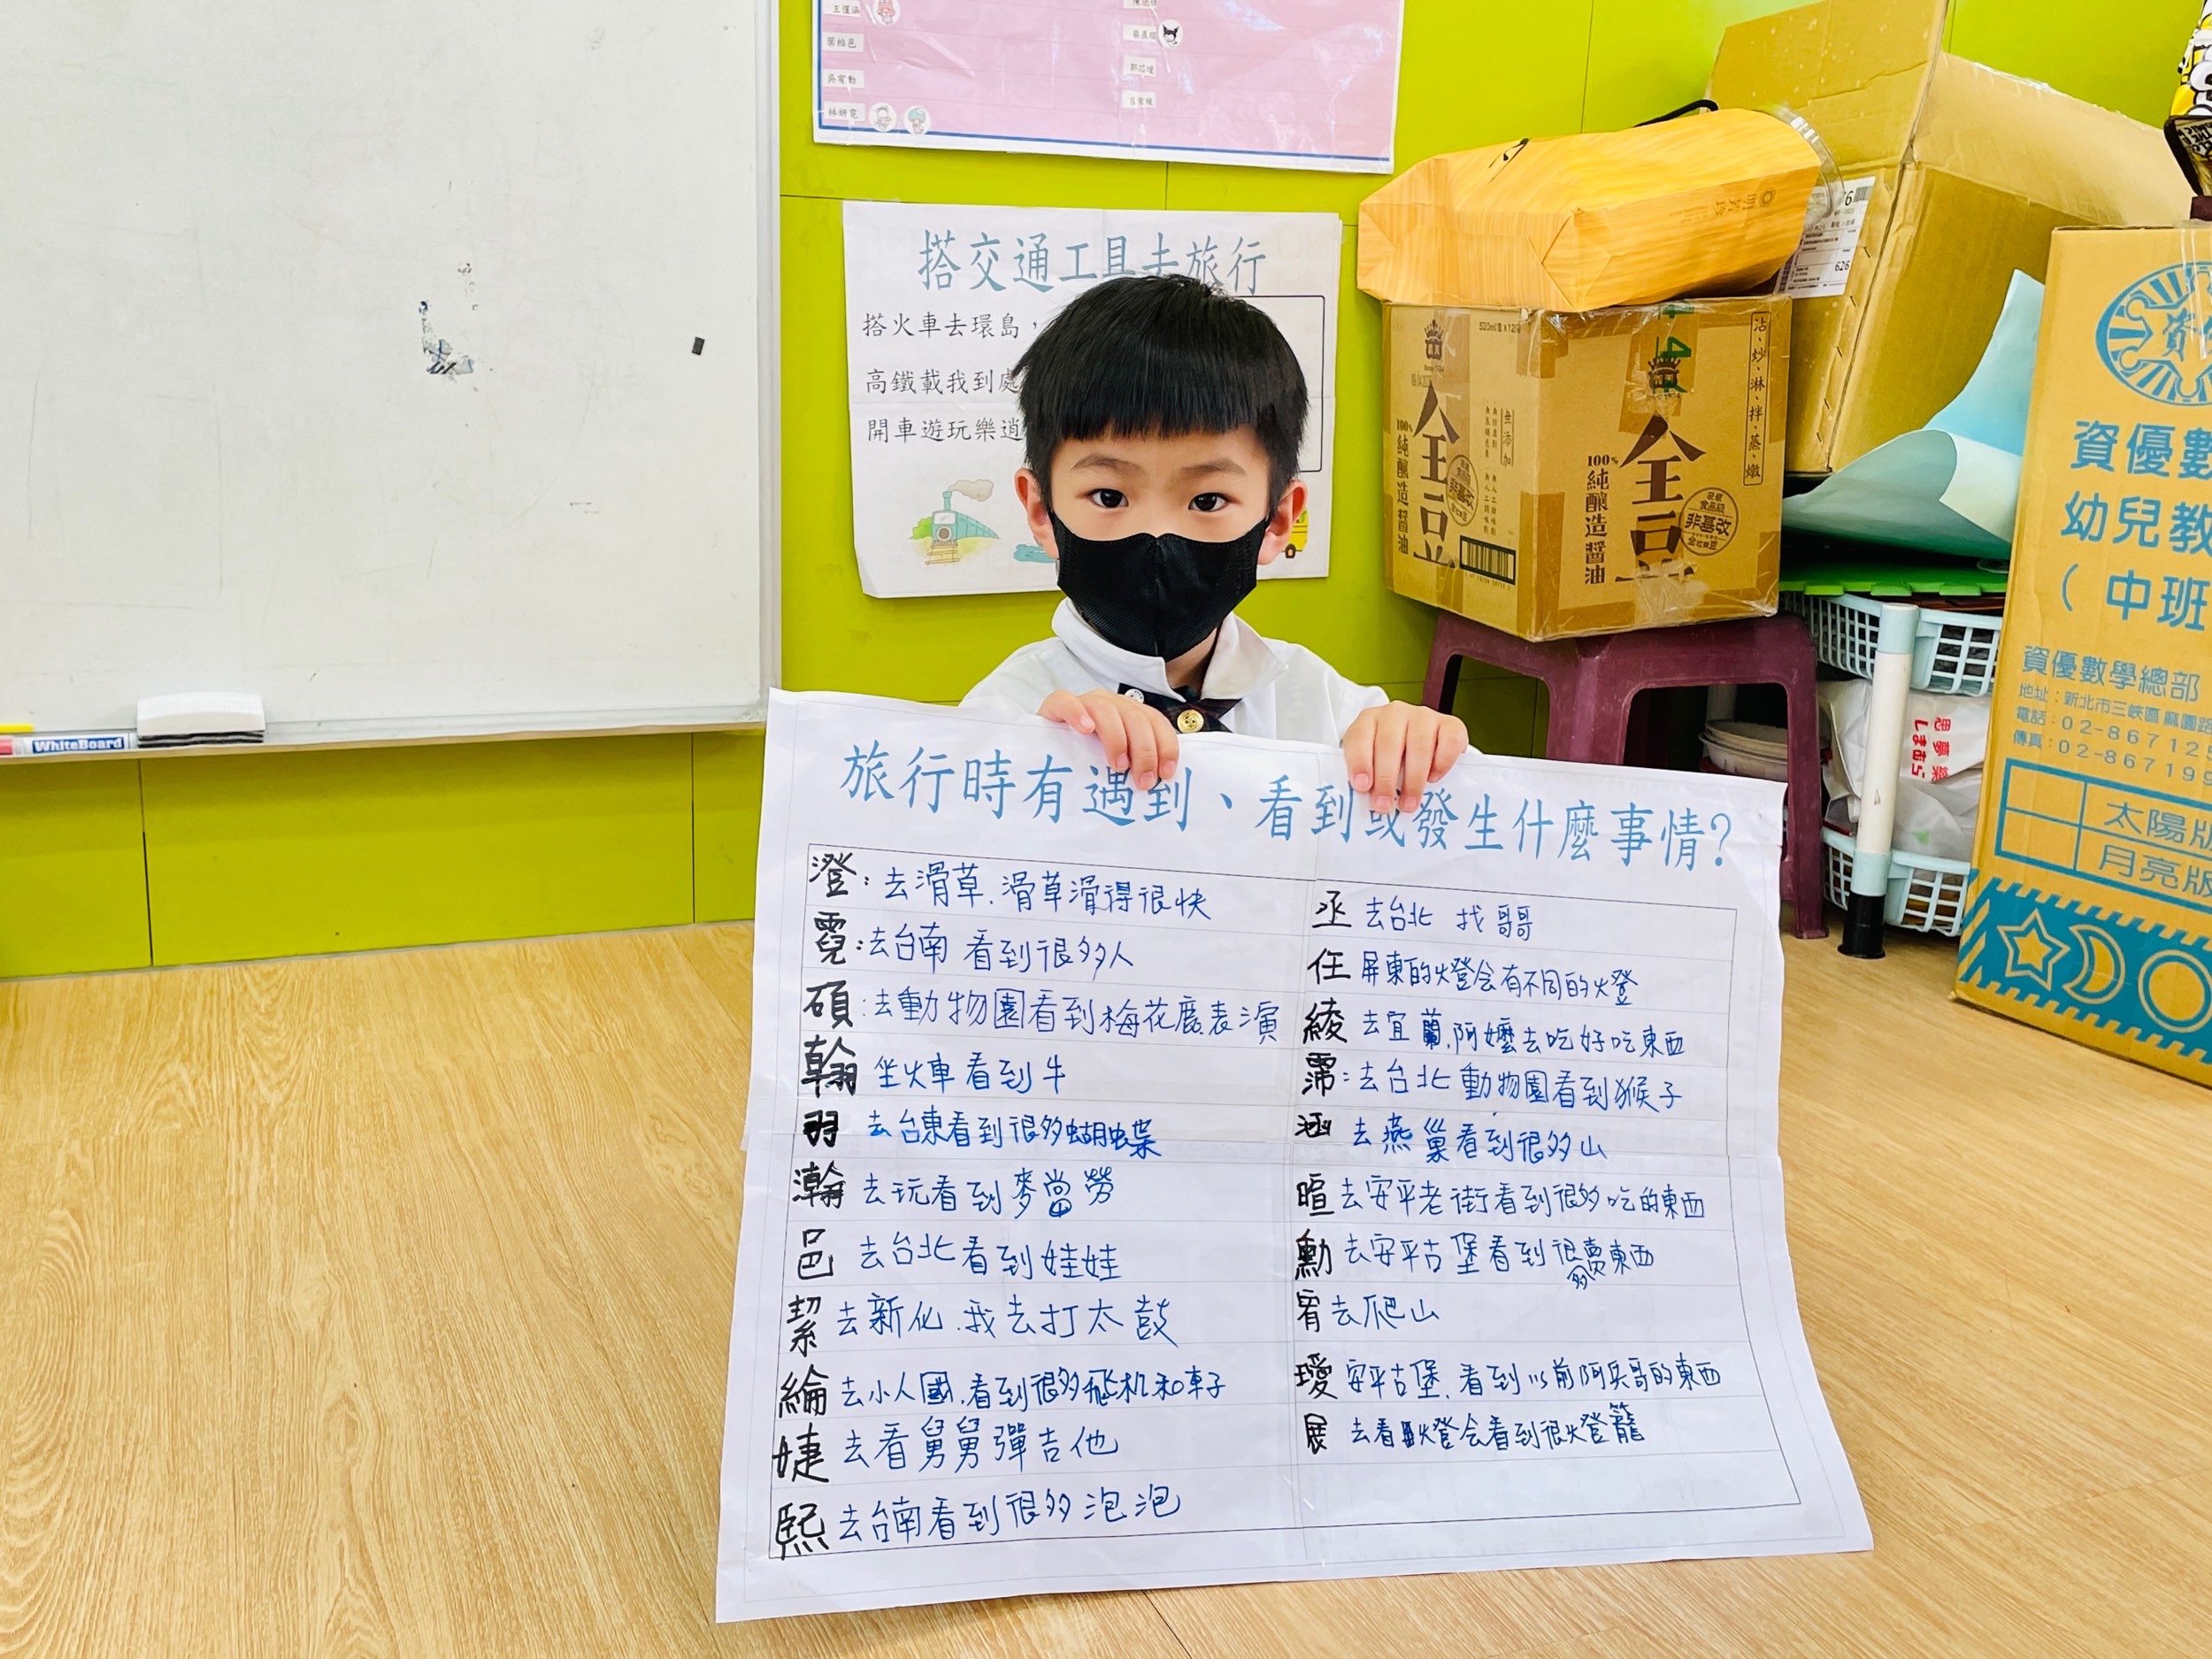 王僅涵
葉柏邑
吳宥勳
林妍霓
搭交通工具去旅行
搭火車去環島，
高鐵載我到處
開車遊玩樂逍
WhiteBoard
旅行時有遇到、看到或發生什麼事情?
澄：去滑草.滑草滑得很快
霓：去台南 看到很多人
碩：去動物園看到梅花鹿表演
翰 坐火車看到牛
羽 去台東看到很多蝴蝶
瀚 去玩看到麥當勞
邑 去台北看到娃娃
絜 去新化.我去打太鼓
綸 去小人國.看到很多飛机和車子
婕 去看舅舅彈吉他
熙 去台南看到很多泡泡
丞 去台北 找哥哥
任 屏東的燈会有不同的燈
綾 去宜蘭.阿嬤去吃好吃東西
霈：去台北動物園看到猴子
涵 去燕巢看到很多山
暄 去安平老街看到很多吃的東西
勳 去安平古堡看到很多賣東西
宥 去爬山
璦 安平古堡.看到以前阿兵哥的東西
展 去看燈会看到很燈籠
520ml
100%純釀造醬油
全豆
無添加
非基改
100%純釀造醬油
全豆
沾、炒、淋、拌、蒸、燉
非基改
626
資優數
幼兒教
（中班
資優數學總部
地址：新北市三峽區
電話：02-867125
傳真：02-867199
太陽版
月亮版